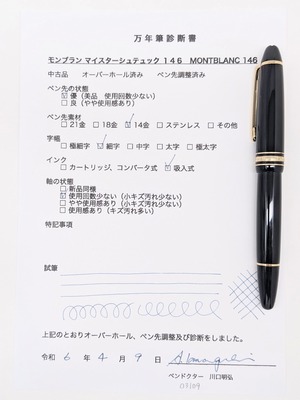 万年筆診断書
モンブラン マイスターシュテュック 146 MONTBLANC 146
中古品 オーバーホール済み ペン先調整済み
ペン先の状態
☑優（美品 使用回数少ない）
□良（やや使用感あり）
ペン先素材
□21金 □18金 ☑14金 □ステンレス □その他
字幅
□極細字 ☑細字 □中字 □太字 □極太字
インク
□カートリッジ、コンバータ式 ☑吸入式
軸の状態
□新品同様
☑使用回数少ない（小キズ汚れ少ない）
□やや使用感あり（小キズ汚れ少ない）
□使用感あり（キズ汚れ多い）
特記事項
試筆
上記のとおりオーバーホール、ペン先調整及び診断をしました。
令和 6 年 4 月 9 日
ペンドクター 川口明弘